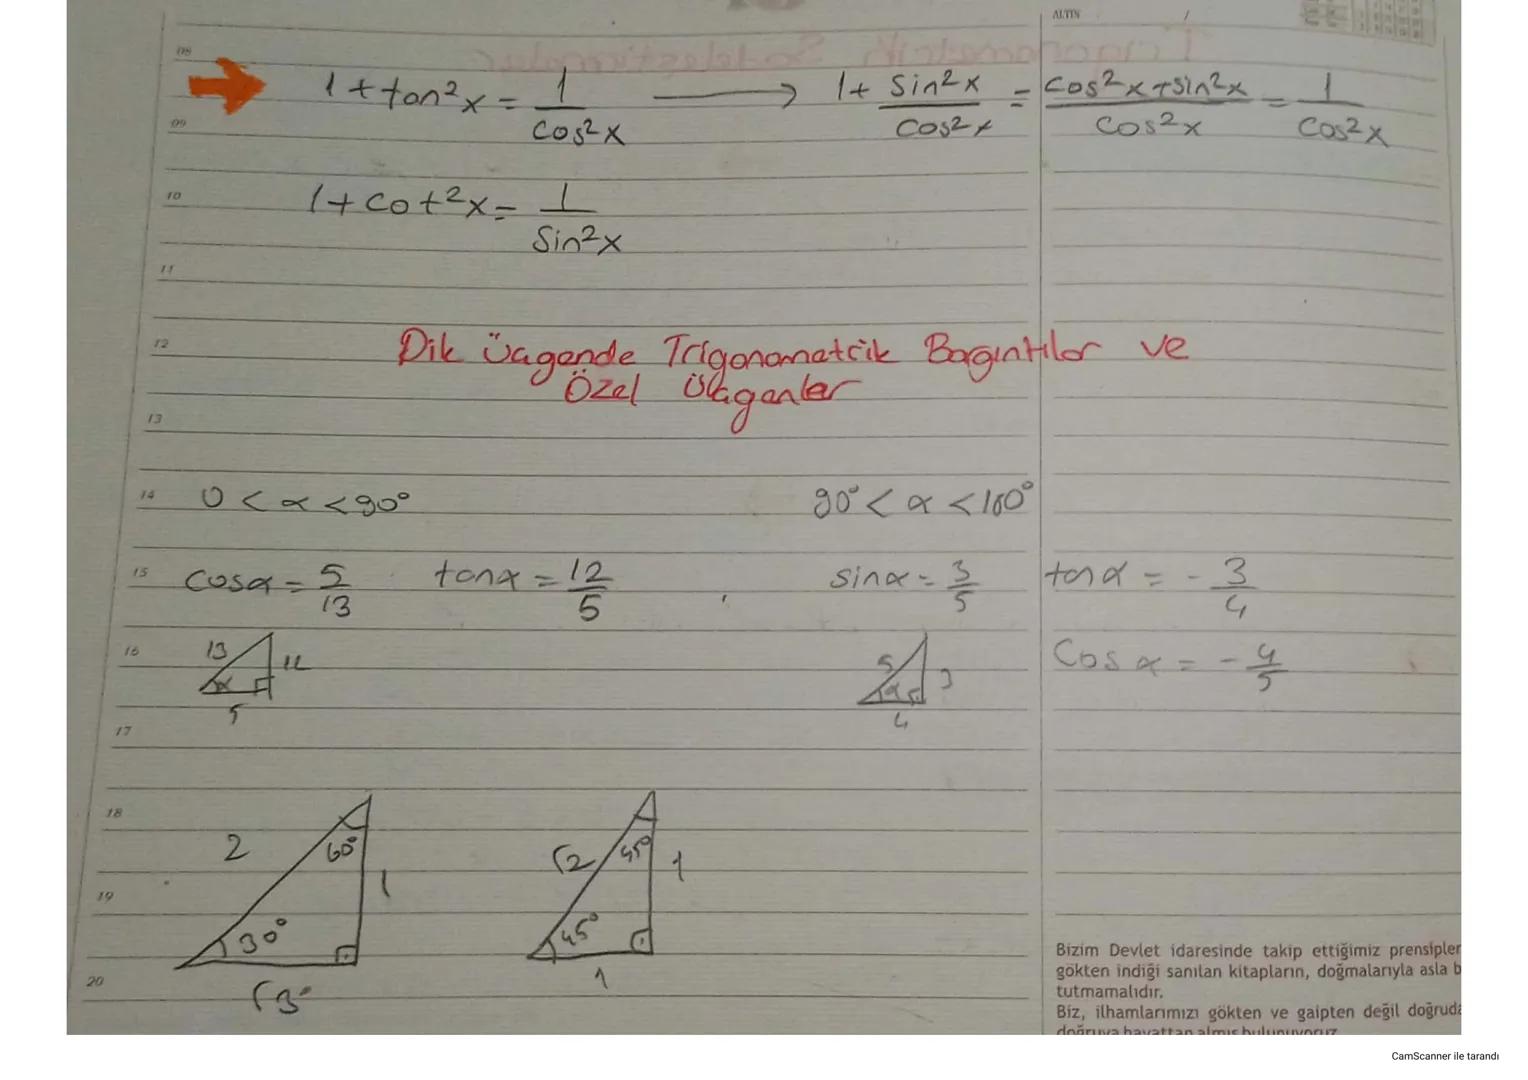 ALTIN /
08
1+tan²x = 1/cos²x → 1+ sin²x/cos²x = cos²x+sin²x/cos²x = 1/cos²x
09
10
1+cot²x = 1/sin²x
11
12
Dik Üçgende Trigonometrik Bagıntılar ve
Özel Üçgenler
13
14
0 < α < 90° 90° < α < 180°
15
cosα = 5/13 tanα = 12/5 sinα = 3/5 tanα = - 3/4
16
13 12 5 3 Cos α = - 4/5
α α
5 4
17
18
2 60° 1 √2 45° 1
19
30° 45°
20
√3 1
Bizim Devlet idaresinde takip ettiğimiz prensipler
gökten indiği sanılan kitapların, doğmalarıyla asla b
tutmamalıdır.
Biz, ilhamlarımızı gökten ve gaipten değil doğruda
doğruya hayattan almış bulunuyoruz
CamScanner ile tarandı